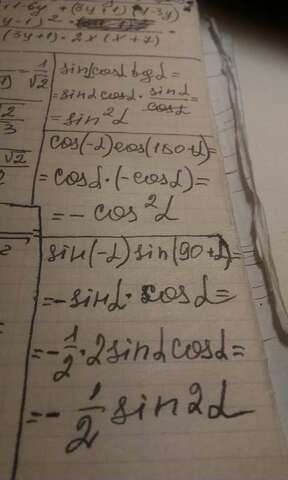 1+6y + (3y+1) (1-3y)
(3y+1) · 2x(x+7)
- 1/√2
sinα cosα tgα =
= sinα cosα · sinα/cosα =
= sin²α
cos(-α) cos(180+α) =
= cosα · (-cosα) =
= - cos²α
sin(-α) sin(90+α) =
= - sinα · cosα =
= - 1/2 · 2sinα cosα =
= - 1/2 sin2α